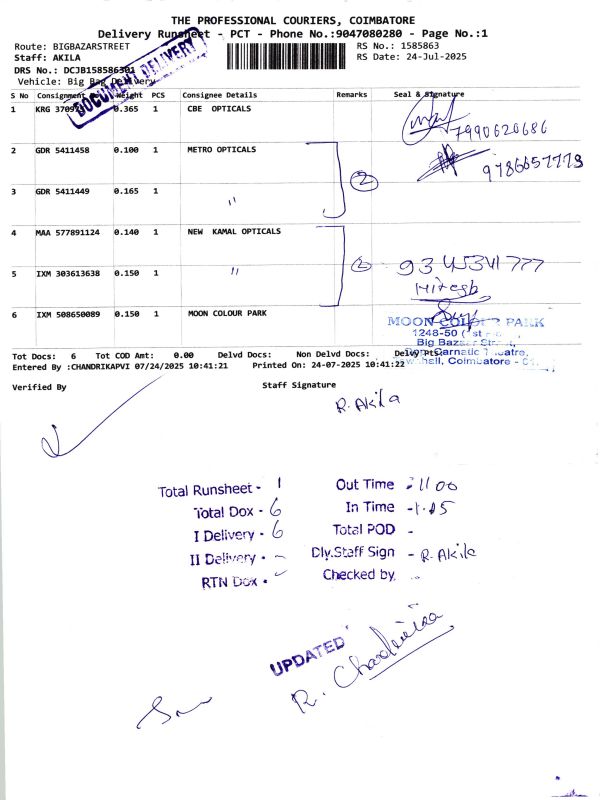 THE PROFESSIONAL COURIERS, COIMBATORE
Delivery Runsheet - PCT - Phone No.:9047080280 - Page No.:1
Route: BIGBAZARSTREET RS No.: 1585863
Staff: AKILA RS Date: 24-Jul-2025
DRS No.: DCJB158586301
Vehicle: Big Bag Delivery
DOCUMENT DELIVERY
S No Consignment Weight PCS Consignee Details Remarks Seal & Signature
1 KRG 0.365 1 CBE OPTICALS
7990620686
2 GDR 5411458 0.100 1 METRO OPTICALS
9786657773
2
3 GDR 5411449 0.165 1 "
4 MAA 577891124 0.140 1 NEW KAMAL OPTICALS
5 IXM 303613638 0.150 1 " 2 9345341777
Hitesh
6 IXM 508650089 0.150 1 MOON COLOUR PARK
MOON COLOUR PARK
1248-50 (1st
Big Bazaar Street,
Carnatic Theatre,
Coimbatore -
Tot Docs: 6 Tot COD Amt: 0.00 Delvd Docs: Non Delvd Docs: Delvy Pts:
Entered By :CHANDRIKAPVI 07/24/2025 10:41:21 Printed On: 24-07-2025 10:41:22
Verified By Staff Signature
R. Akila
Total Runsheet - 1 Out Time - 11 00
Total Dox - 6 In Time -
I Delivery - 6 Total POD -
II Delivery - - Dly.Staff Sign - R. Akila
RTN Dox - Checked by
UPDATED